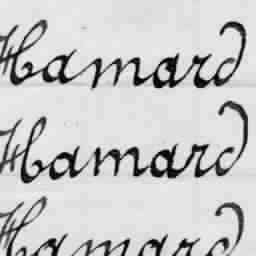 Hamard
Hamard
Hamard